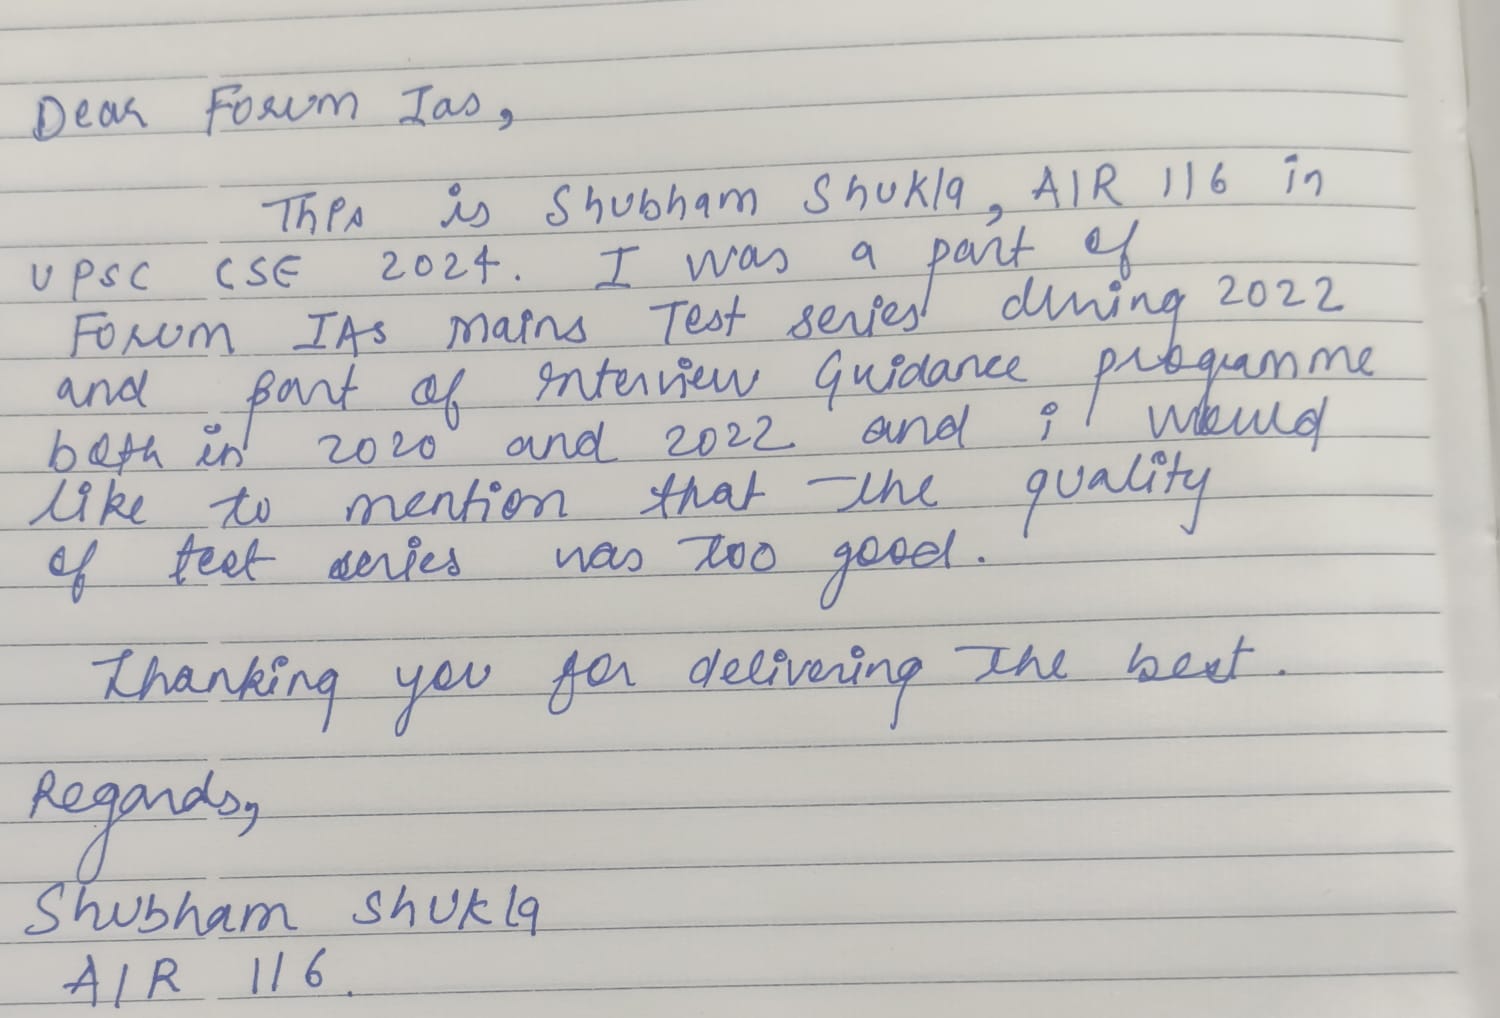 Dear Forum Ias,
This is Shubham Shukla, AIR 116 in
UPSC CSE 2024. I was a part of
Forum IAS mains Test series during 2022
and part of Interview Guidance programme
both in 2020 and 2022 and i would
like to mention that the quality
of test series was too good.
Thanking you for delivering the best.
Regards,
Shubham Shukla
AIR 116.